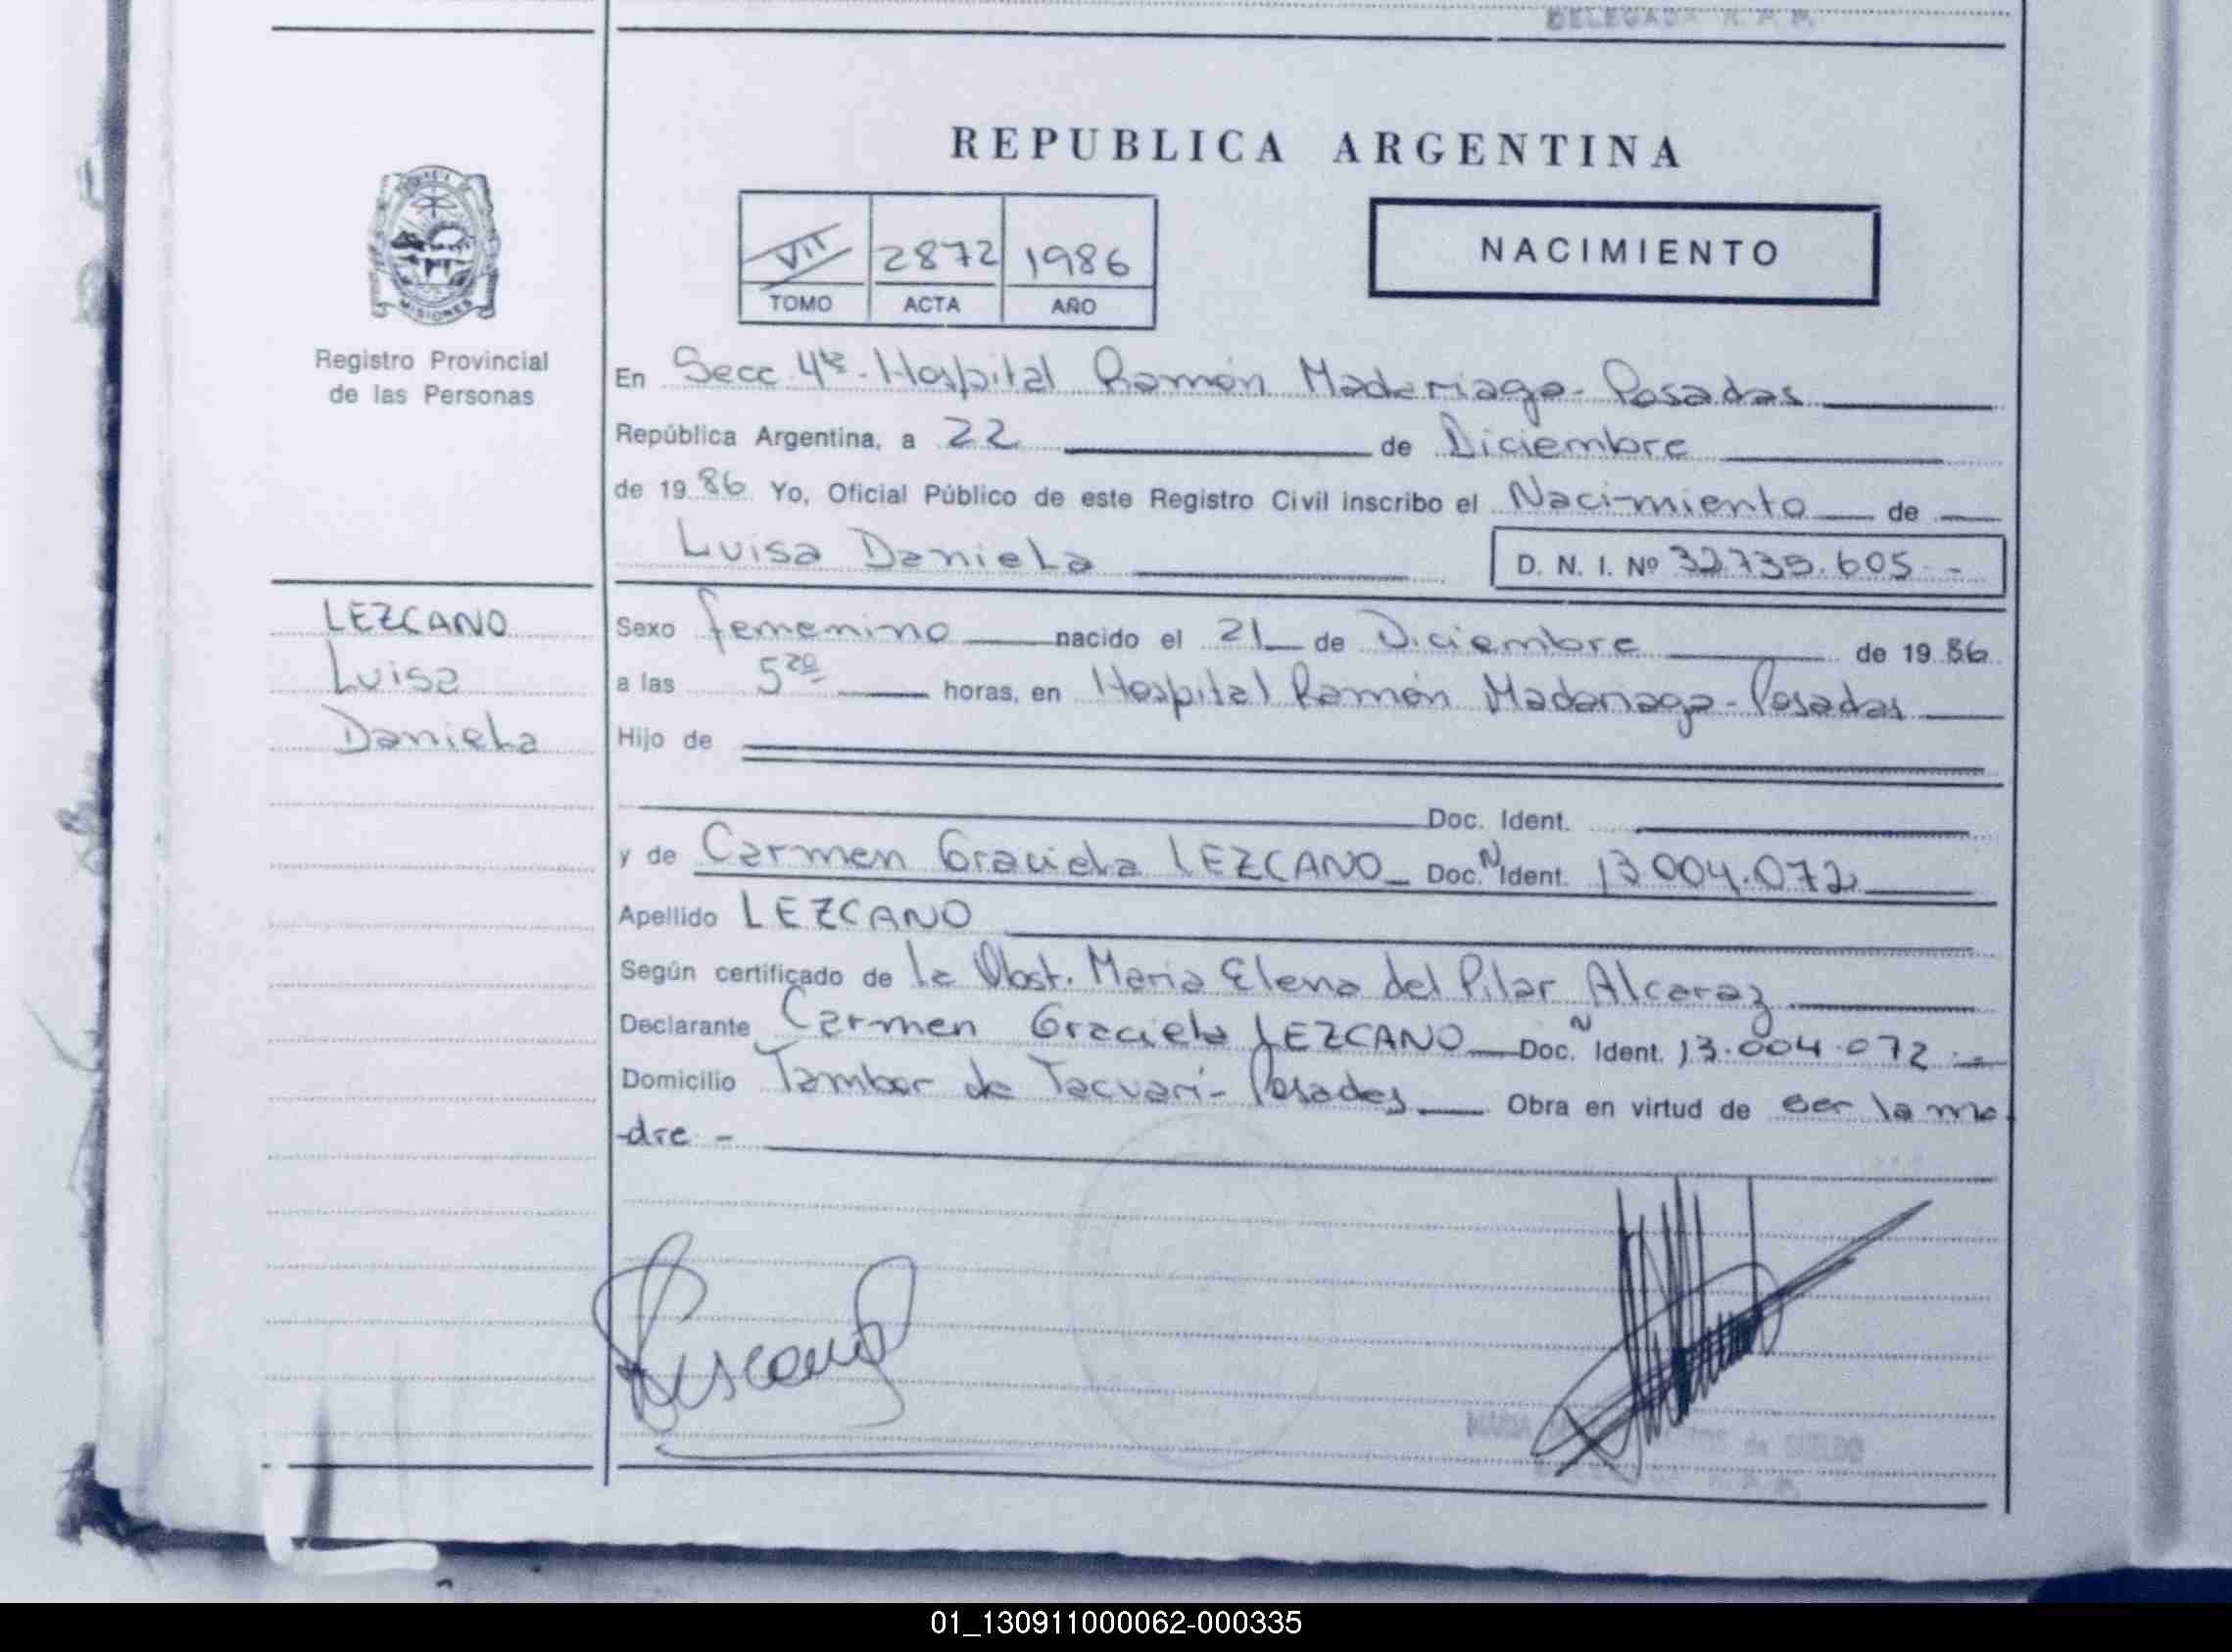 DELEGADA R. P. P.
REPUBLICA ARGENTINA
PROVINCIA DE
MISIONES
VII 2872 1986
TOMO ACTA AÑO
NACIMIENTO
Registro Provincial
de las Personas
En Secc 4ta - Hospital Ramón Madariaga - Posadas
República Argentina, a 22 de Diciembre
de 1986 Yo, Oficial Público de este Registro Civil inscribo el Nacimiento de
Luisa Daniela D. N. I. Nº 32.735.605 -
LEZCANO
Luisa
Daniela
Sexo femenino nacido el 21 de Diciembre de 1986
a las 5 20 horas, en Hospital Ramón Madariaga - Posadas
Hijo de
Doc. Ident.
y de Carmen Graciela LEZCANO Doc. N Ident. 13.004.072
Apellido LEZCANO
Según certificado de la Obst. Maria Elena del Pilar Alcaraz
Declarante Carmen Graciela LEZCANO Doc. N Ident. 13.004.072 -
Domicilio Tambor de Tacuari - Posadas Obra en virtud de ser la ma
-dre -
Lescano
MARIA de SUELDO
01_130911000062-000335